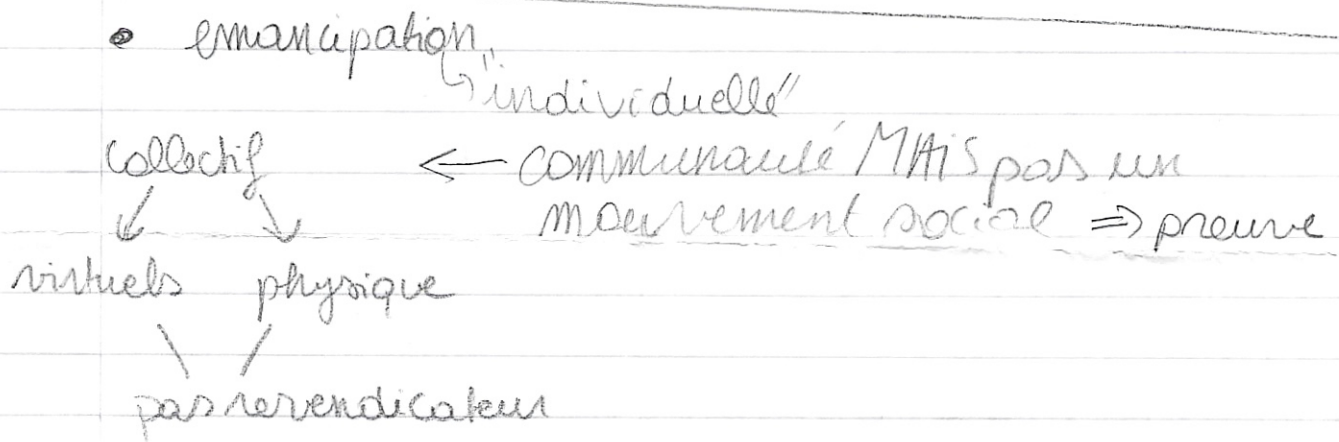 • emancipation
↳ "individuelle"
collectif ← communauté MAiS pas un
mouvement social ⇒ preuve
virtuels physique
pas revendicateur